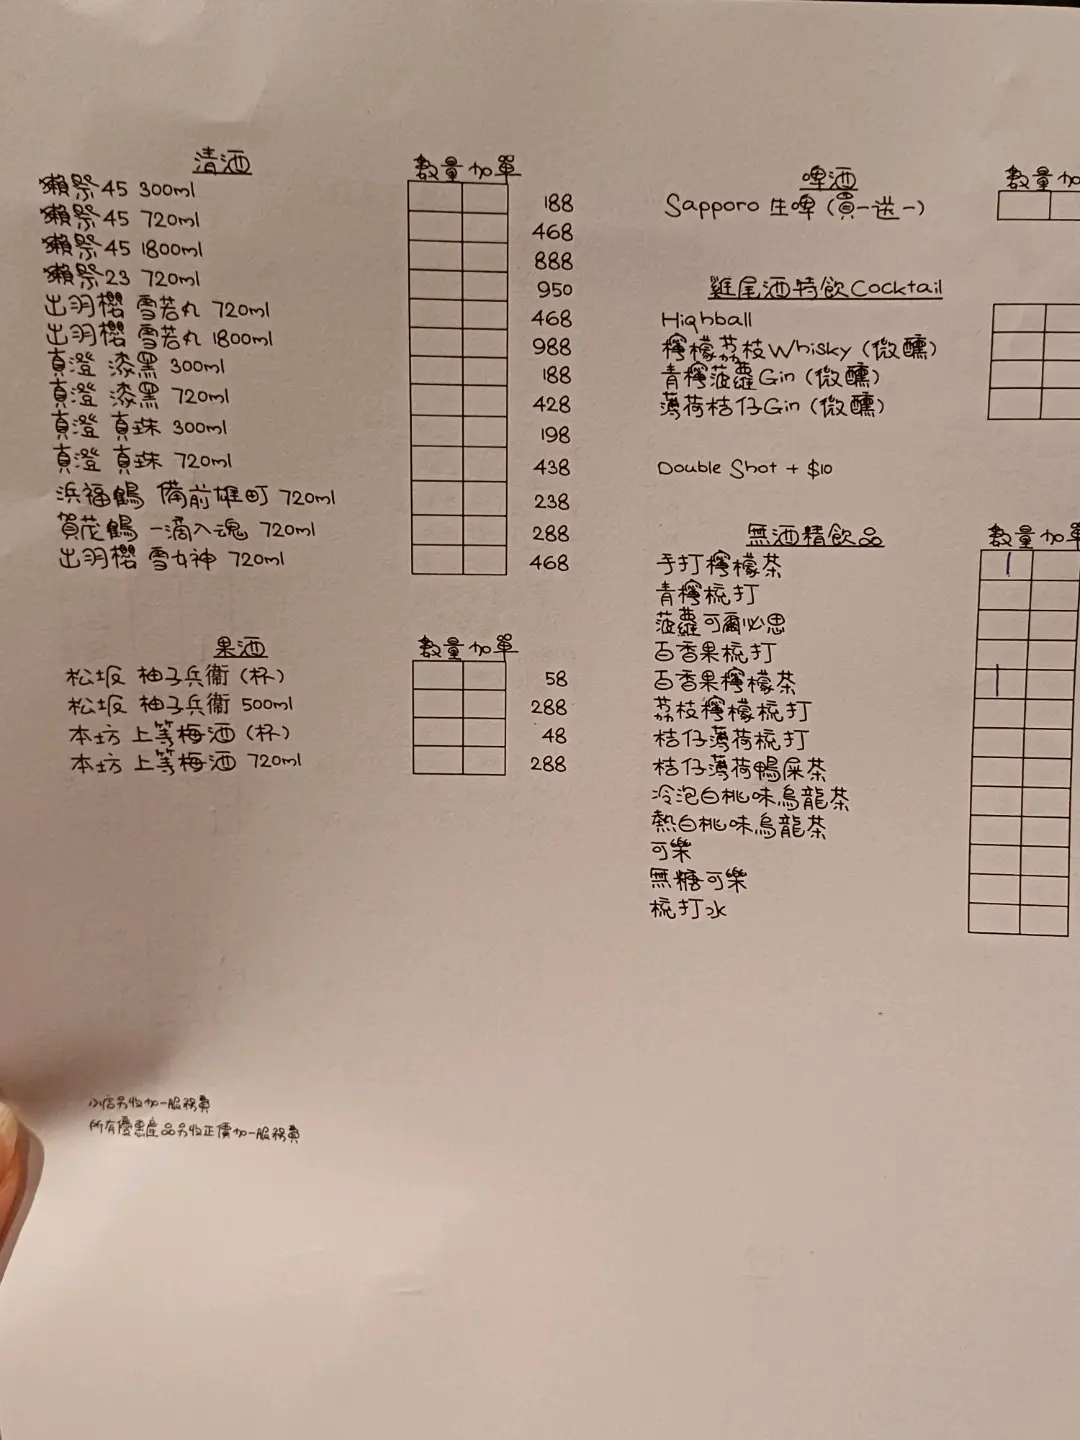 清酒
數量 加單
獺祭45 300ml 188
獺祭45 720ml 468
獺祭45 1800ml 888
獺祭23 720ml 950
出羽櫻 雪若丸 720ml 468
出羽櫻 雪若丸 1800ml 988
真澄 漆黑 300ml 188
真澄 漆黑 720ml 428
真澄 真珠 300ml 198
真澄 真珠 720ml 438
浜福鶴 備前雄町 720ml 238
賀茂鶴 一滴入魂 720ml 288
出羽櫻 雪女神 720ml 468
果酒
數量 加單
松坂 柚子兵衛 (杯) 58
松坂 柚子兵衛 500ml 288
本坊 上等梅酒 (杯) 48
本坊 上等梅酒 720ml 288
小店另收加一服務費
所有優惠產品另收正價加一服務費
啤酒
數量 加
Sapporo 生啤 (買一送一)
雞尾酒特飲Cocktail
Highball
檸檬荔枝Whisky (微醺)
青檸菠蘿Gin (微醺)
薄荷桔仔Gin (微醺)
Double Shot + $10
無酒精飲品
數量 加單
手打檸檬茶 1
青檸梳打
菠蘿可爾必思
百香果梳打
百香果檸檬茶 1
荔枝檸檬梳打
桔仔薄荷梳打
桔仔薄荷鴨屎茶
冷泡白桃味烏龍茶
熱白桃味烏龍茶
可樂
無糖可樂
梳打水